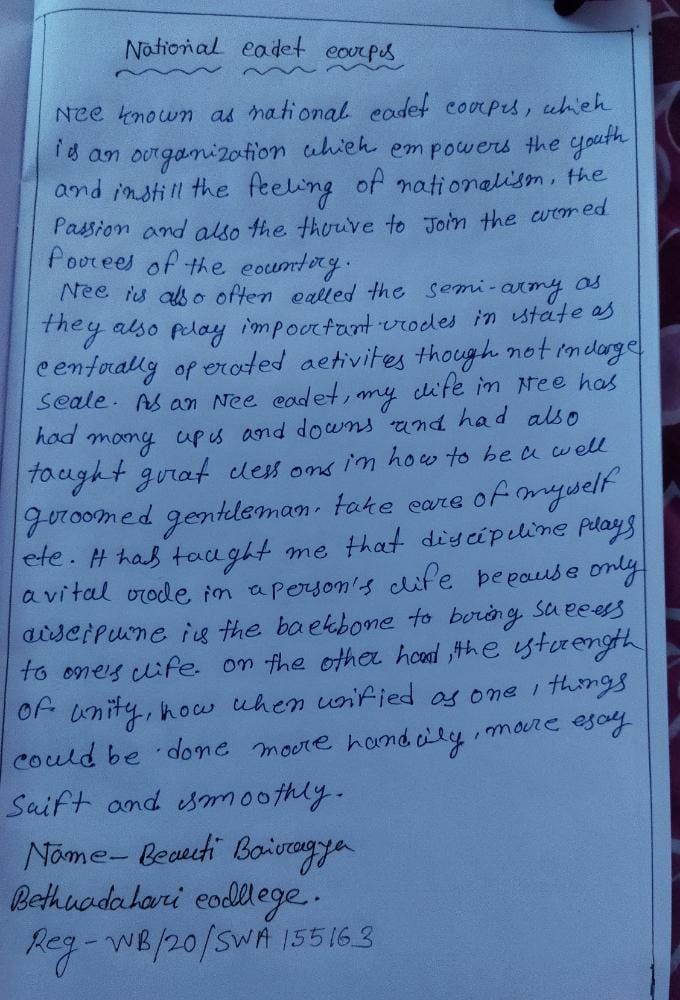 National cadet courps
Ncc known as national cadet courps, which
is an ourganization which empowers the youth
and instill the feeling of nationalism, the
Passion and also the thourive to Join the armed
fources of the country.
Ncc is also often called the semi-army as
they also play impourtant roles in state as
centrally operated activites though not in large
scale. As an Ncc cadet, my life in Ncc has
had many ups and downs and had also
taught great lessons in how to be a well
groomed gentleman. take care of myself
etc. It has taught me that discipline plays
a vital role in a person's life because only
discipline is the backbone to boring success
to one's life. on the other hand, the strength
of unity, how when unified as one, things
could be done moure handily, moure esay
Saift and smoothly.
Name- Beauti Bairagya
Bethuadahari college.
Reg-WB/20/SWA 155163